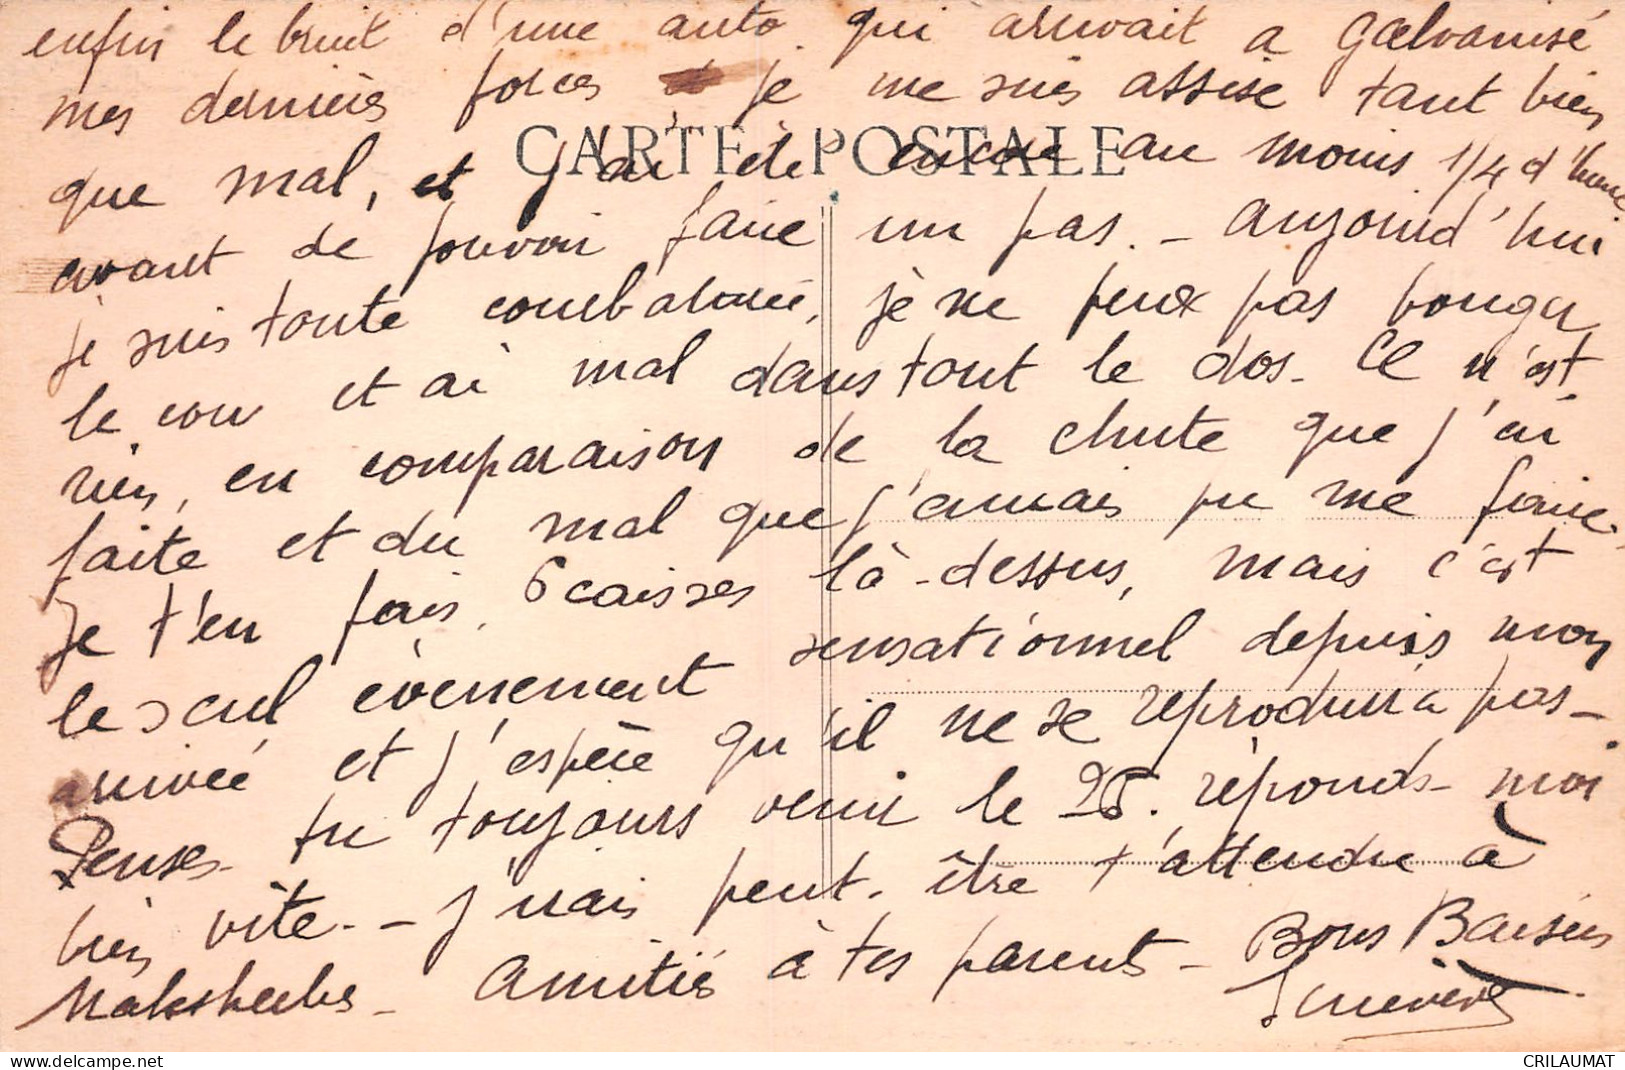 enfin le bruit d'une auto qui arrivait a galvanisé
mes dernières forces je me suis assise tant bien
CARTE POSTALE
que mal, et j'ai été encore au moins 1/4 d'heure
avant de pouvoir faire un pas. - Aujourd'hui
je suis toute courbaturée, je ne peux pas bouger
le cou et ai mal dans tout le dos. Ce n'est
rien, en comparaison de la chute que j'ai
faite et du mal que j'aurais pu me faire.
Je t'en fais 6 caisses là-dessus, mais c'est
le seul évènement sensationnel depuis mon
arrivée et j'espère qu'il ne se reproduira pas -
Penses-tu toujours venir le 28. réponds-moi
bien vite. - J'irais peut-être t'attendre à
Amitiés à tes parents - Bons Baisers
Geneviève
delcampe.net
CRILAUMAT